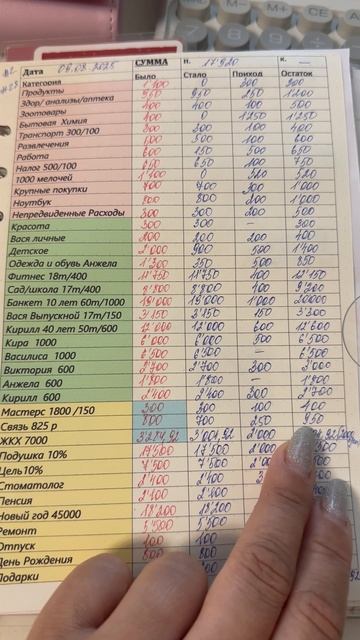 Дата 08.08.2025 СУММА Н. 17'920 К. —
Категория Было Стало Приход Остаток
Продукты 0 300 300
Здор/ анализы/аптека 950 950 250 1'200
Зоотовары 400 400 100 500
Бытовая Химия 0 1'250 1'250
Транспорт 300/100 300 300 100 400
Развлечения 500 500 100 600
Работа 150 500 650
Налог 500/100 650 650 100 750
1000 мелочей 0 520 520
Крупные покупки 700 700 300 1'000
Ноутбук 800 800 200 1'000
Непредвиденные Расходы 300 300 200 500
Красота 300 300 — 300
Вася личные 200 200 200 400
Детское 900 500 1'400
Одежда и обувь Анжела 300 500 800
Фитнес 18т/400 11'750 11'750 400 12'150
Сад/школа 17т/400 8'800 8'800 400 9'200
Банкет 10 лет 60т/1000 19'000 19'000 1'000 20'000
Вася Выпускной 17т/150 3'150 3'150 150 3'300
Кирилл 40 лет 50т/600 12'000 12'000 600 12'600
Кира 1000 6'000 6'000 500 6'500
Василиса 1000 6'500 6'500 — 6'500
Виктория 600 2'700 2'700 300 3'000
Анжела 600 1'800 1'800 — 1'800
Кирилл 600 2'400 2'400 300 2'700
Мастерс 1800 /150 300 300 100 400
Связь 825 р 700 250 950
ЖКХ 7000 3'001,92 2'000
Подушка 10% 17'500 17'500
Цель10% 7'500 7'500
Стоматолог 2'400 2'400
Пенсия 2'100
Новый год 45000 18'200 18'200
Ремонт 5'500 5'500
Отпуск 100 100
День Рождения 800 800
Подарки